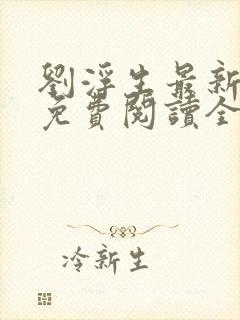 劉浮生最新
免費閱讀全
冷新生